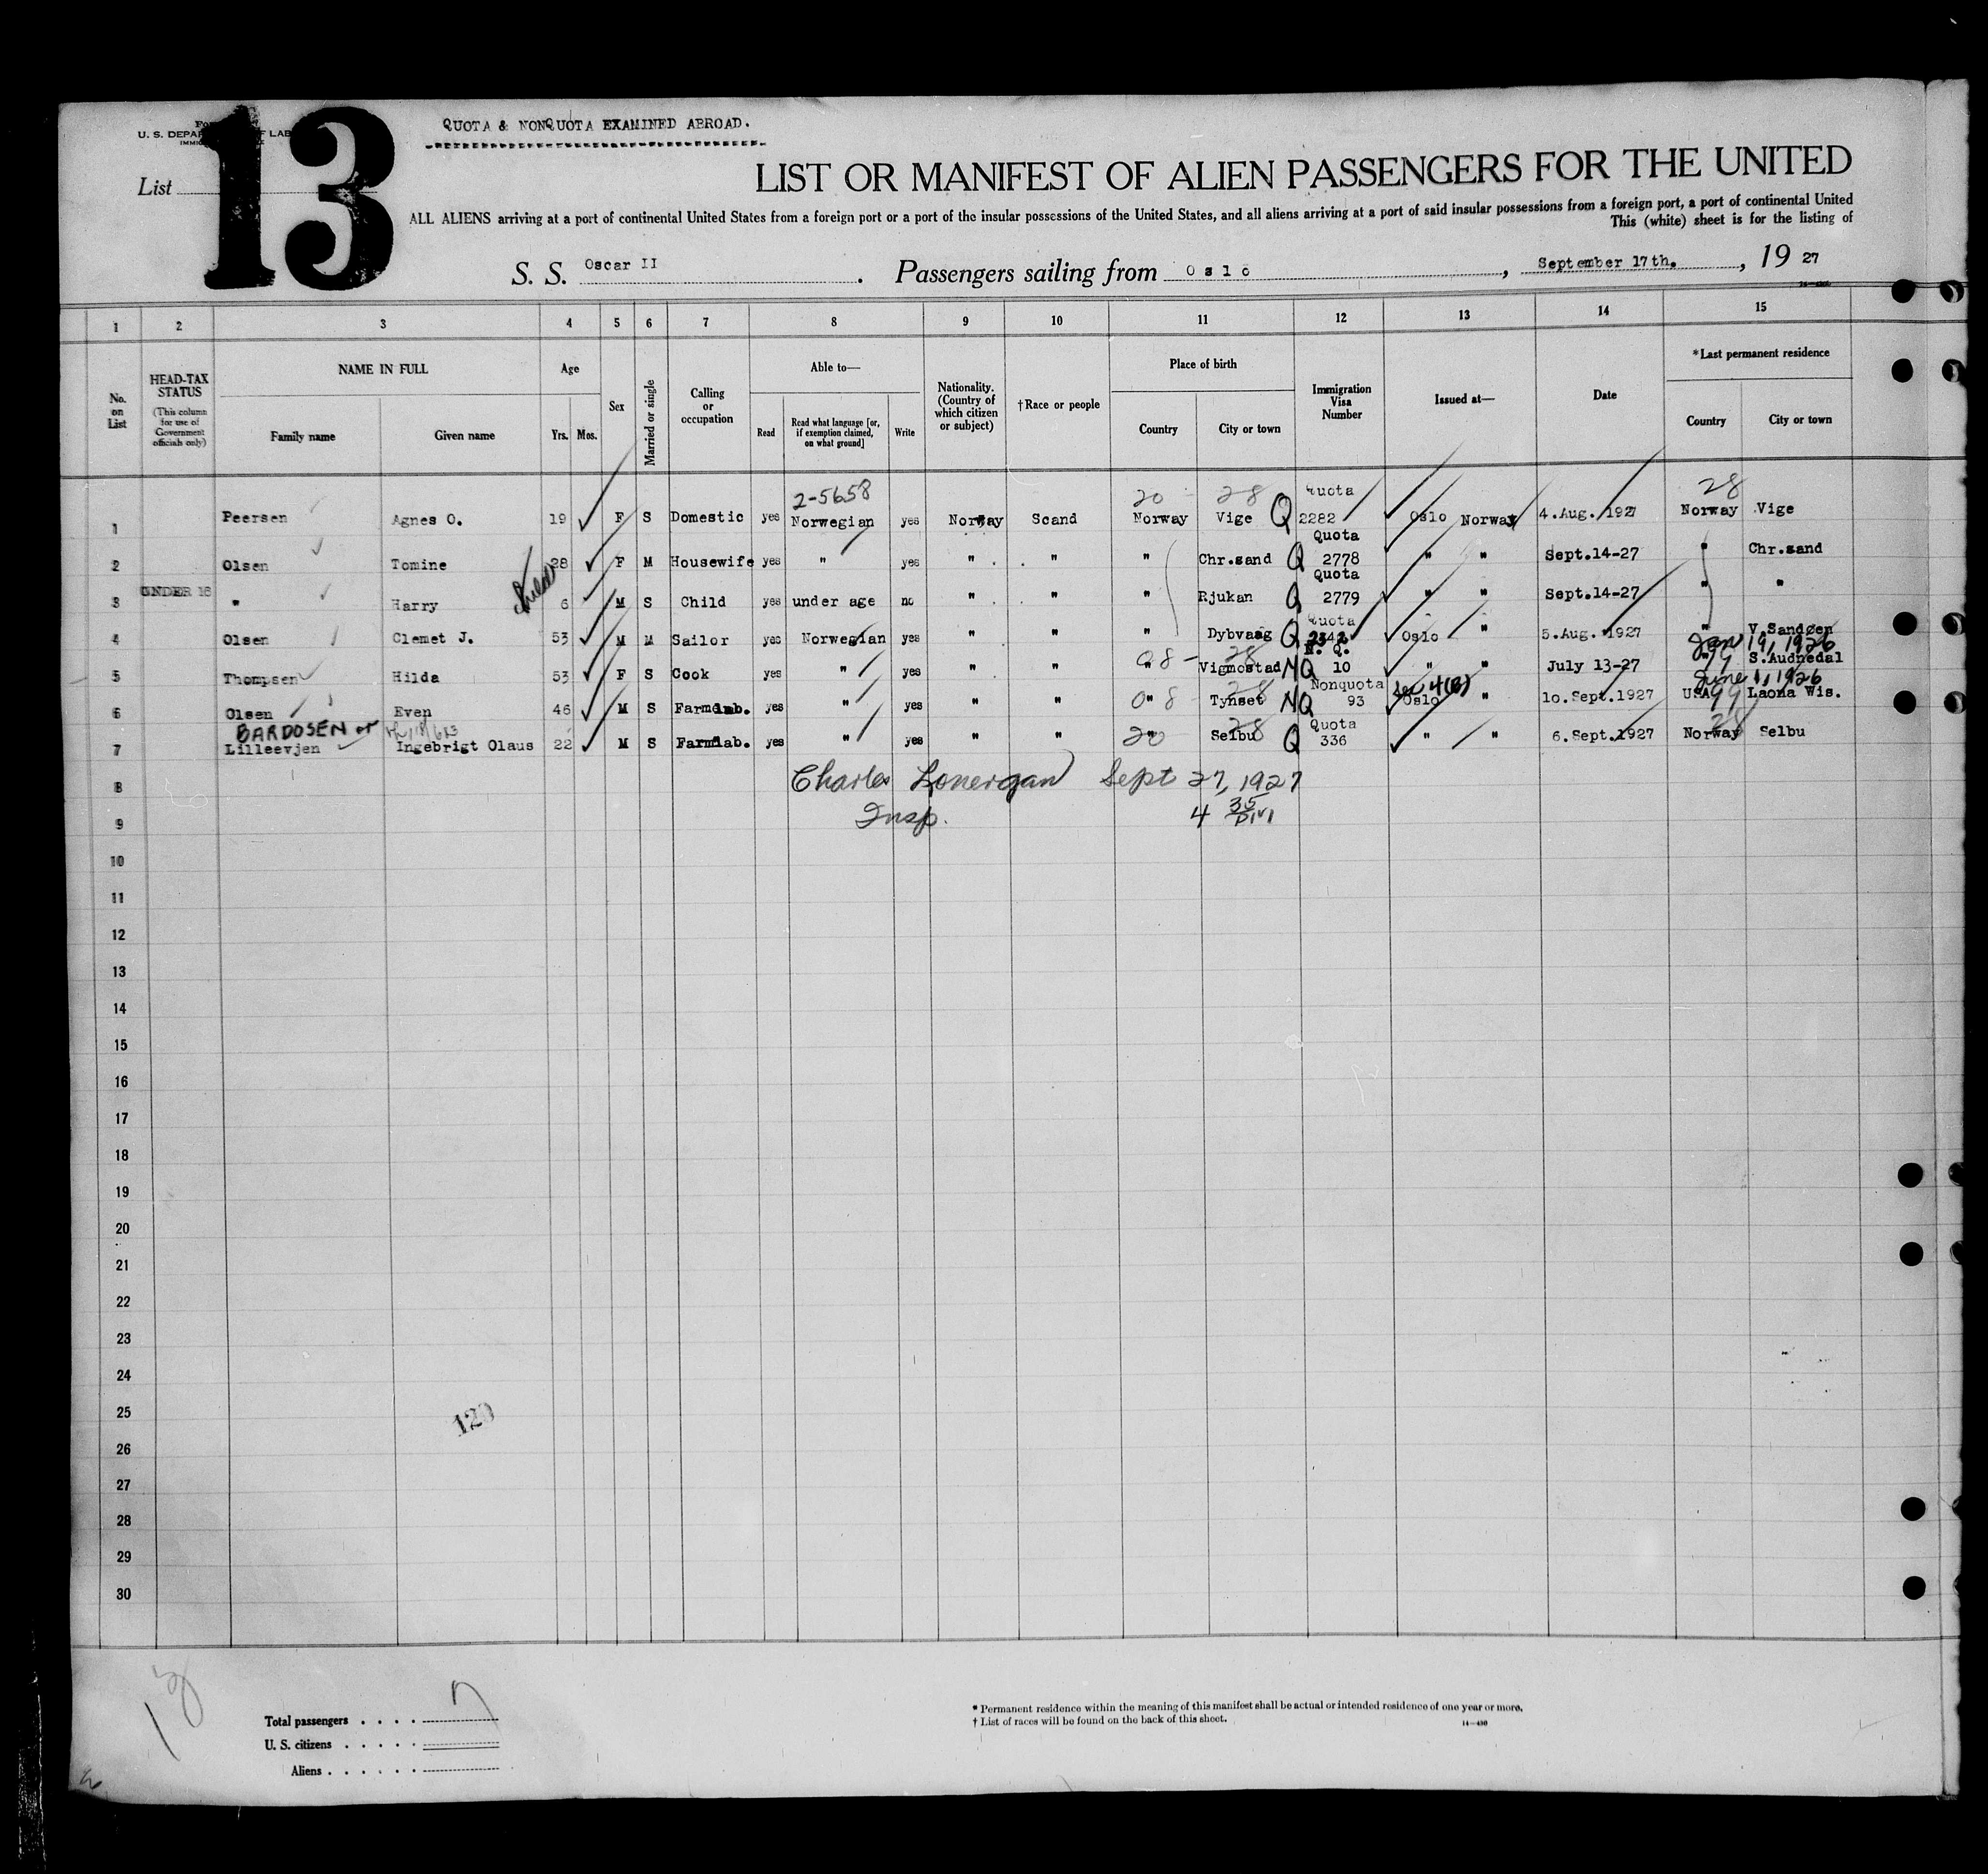 QUOTA & NONQUOTA EXAMINED ABROAD.
U. S. DEPA F LAB
List 13
LIST OR MANIFEST OF ALIEN PASSENGERS FOR THE UNITED
ALL ALIENS arriving at a port of continental United States from a foreign port or a port of the insular possessions of the United States, and all aliens arriving at a port of said insular possessions from a foreign port, a port of continental United
This (white) sheet is for the listing of
S. S. Oscar II . Passengers sailing from Oslo , September 17th. , 19 27
1 2 3 4 5 6 7 8 9 10 11 12 13 14 15
No. on List
HEAD-TAX STATUS (This column for use of Government officials only)
NAME IN FULL
Family name Given name
Age
Yrs. Mos.
Sex
Married or single
Calling or occupation
Able to—
Read Read what language [or, if exemption claimed, on what ground] Write
Nationality. (Country of which citizen or subject)
†Race or people
Place of birth
Country City or town
Immigration Visa Number
Issued at—
Date
*Last permanent residence
Country City or town
2-5658 20 - 28 Quota 28
1 Peersen Agnes O. 19 F S Domestic yes Norwegian yes Norway Scand Norway Vige Q 2282 Oslo Norway 4.Aug.1927 Norway Vige
Quota
2 Olsen Tomine 28 F M Housewife yes " yes " " " Chr.sand Q 2778 " " Sept.14-27 " Chr.sand
UNDER 16 child Quota
3 " Harry 6 M S Child yes under age no " " " Rjukan Q 2779 " " Sept.14-27 " "
Quota
4 Olsen Clemet J. 53 M M Sailor yes Norwegian yes " " " Dybvaag Q 2342 Oslo " 5.Aug.1927 " V.Sandøen
08 - 28 N. Q. Jan 19, 1926
5 Thompsen Hilda 53 F S Cook yes " yes " " " Vigmostad NQ 10 " " July 13-27 " 99 S.Audnedal
Nonquota Sec 4(B) June 1, 1926
6 Olsen Even 46 M S Farmlab. yes " yes " " 0" 8 - 28 Tynset NQ 93 Oslo " 10.Sept.1927 USA 99 Laona Wis.
BARDOSEN or Quota
7 Lilleevjen Ingebrigt Olaus 22 M S Farmlab. yes " yes " " 20 " 28 Selbu Q 336 " " 6.Sept.1927 28 Norway Selbu
8 Charles Lonergan Sept 27, 1927
9 Insp. 4 35 PM
10
11
12
13
14
15
16
17
18
19
20
21
22
23
24
25
26
27
28
29
30
Total passengers . . . . 7
U. S. citizens . . . . .
Aliens . . . . . .
13
* Permanent residence within the meaning of this manifest shall be actual or intended residence of one year or more.
† List of races will be found on the back of this sheet.
14—430